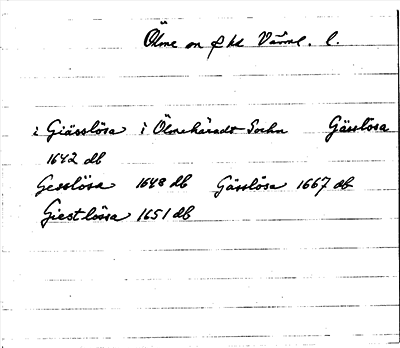 Ölme sn o hd Värml. l.
i Giässlösa i Ölmehäradt Sochn Gässlösa
1642 db
Gesslösa 1648 db Gässlösa 1667 db
Giestlössa 1651 db